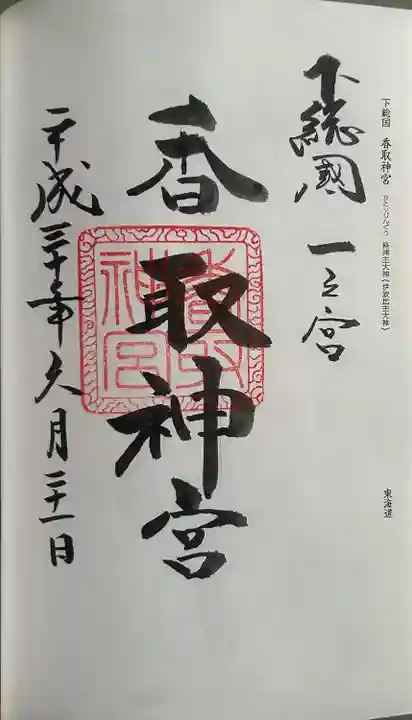 下総国 香取神宮 かとりじんぐう 経津主大神(伊波比主大神)
東海道
下総國 一之宮
香取神宮
香取神宮
平成三十年九月二十一日